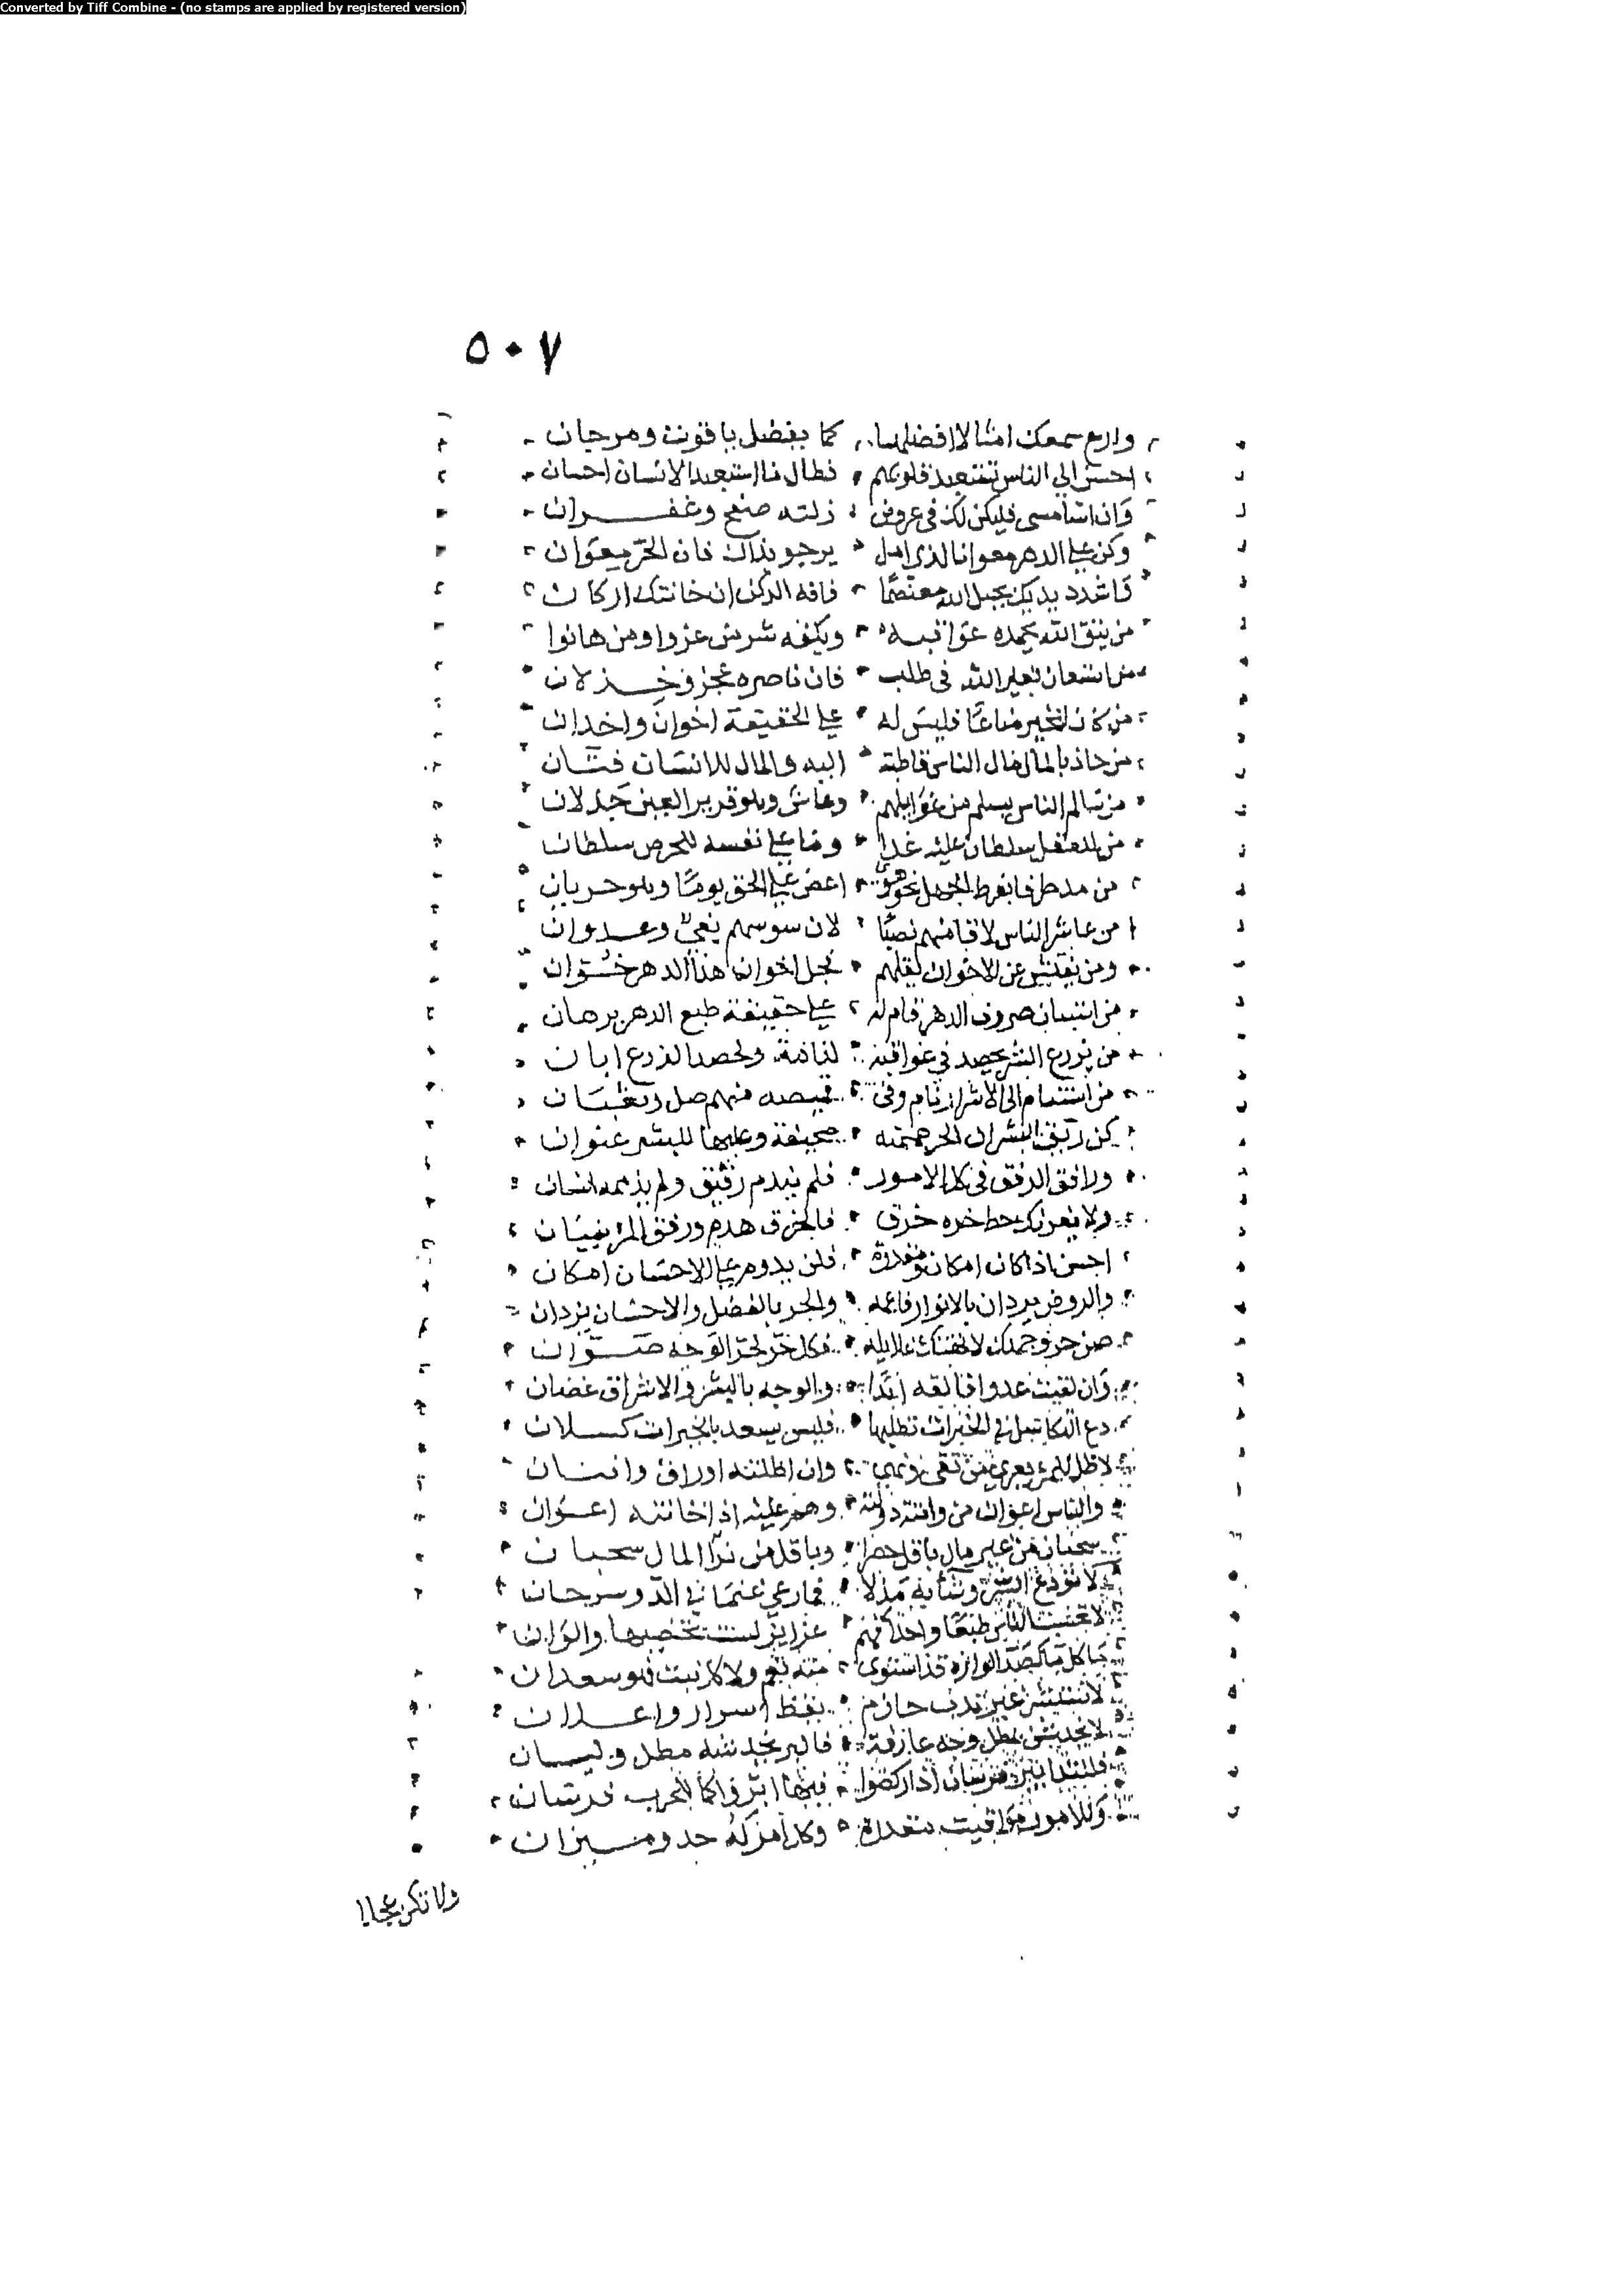 Converted by Tiff Combine - (no stamps are applied by registered version)
٥٠٧
وارع سمعك امثالا افضلها كما يفضل ياقوت ومرجان
احسن الى الناس تستعبد قلوبهم فطال ما استعبد الانسان احسان
وان اسا مسى فليكن لك فى عروض زلته صفح وغفران
وكن على الدهر معوانا لذى امل يرجو نداك فان الحر معوان
واشدد يديك بحبل الله معتصما فانه الركن ان خانتك اركان
من يتق الله يحمد عواقبه ويكفه شر من عزوا ومن هانوا
من استعان بغير الله فى طلب فان ناصره عجز وخذلان
من كان للخير مناعا فليس له على الحقيقة اخوان واخدان
من جاد بالمال مال الناس قاطبة اليه والمال للانسان فتان
من سالم الناس يسلم من غوايلهم وعاش وهو قرير العين جذلان
من للعقل سلطان عليه غدا وما على نفسه للحرص سلطان
من مد طرفا بفرط الجهل نحو هوى اغض على الحق يوما وهو خزيان
من عاشر الناس لاقا منهم نصبا لان سوسهم بغى وعدوان
ومن يفتش عن الاخوان يقلهم فجل اخوان هذا الدهر خوان
من استبان صروف الدهر قام له على حقيقة طبع الدهر برهان
من يزرع الشر يحصد فى عواقبه ندامة ولحصد الزرع ابان
من استنام الى الاشرار نام وفى قميصه منهم صل وثعبان
كن ريق البشر ان الحر همته صحيفة وعليها للبشر عنوان
ورافق الرفق فى كل الامور فلم يندم رفيق ولم يذممه انسان
ولا يغرنك حظ جره خرق فالخرق هدم ورفق المرء بنيان
احسن اذا كان امكان ومقدرة فلن يدوم على الاحسان امكان
والروض يزدان بالانوار فاغمه والحر بالفضل والاحسان يزدان
صن حر وجهك لا تهتك غلايله فكل حر لحر الوجه صوان
وان لقيت عدوا فالقه ابدا والوجه بالبشر والاشراق غضان
دع التكاسل فى الخيرات تطلبها فليس يسعد بالخيرات كسلان
لا ظل للمرء يعرى من تقى ونهى وان اظلته اوراق وافنان
والناس اعوان من واتته دولته وهم عليه اذا خانته اعوان
سحبان من غير مال باقل حصرا وباقل من ثرا المال سحبان
لا تودع السر وشاية مذلا فما رعى غنما فى الدو سرحان
لا تحسب الناس طبعا واحدا فلهم غرايز لست تحصيها والوان
ما كل ماء كصدا لوارده نعم ولا كل نبت فهو سعدان
لا تستشر غير ندب حازم يقظ اسرار واعلان
لا تخدشن بمطل وجه عارفة فالبر يخدشه مطل وليان
فللتدابير فرسان اذا ركضوا فيها ابروا كما للحرب فرسان
وللامور مواقيت مقدرة وكل امر له حد وميزان
ولا تكن عجلا